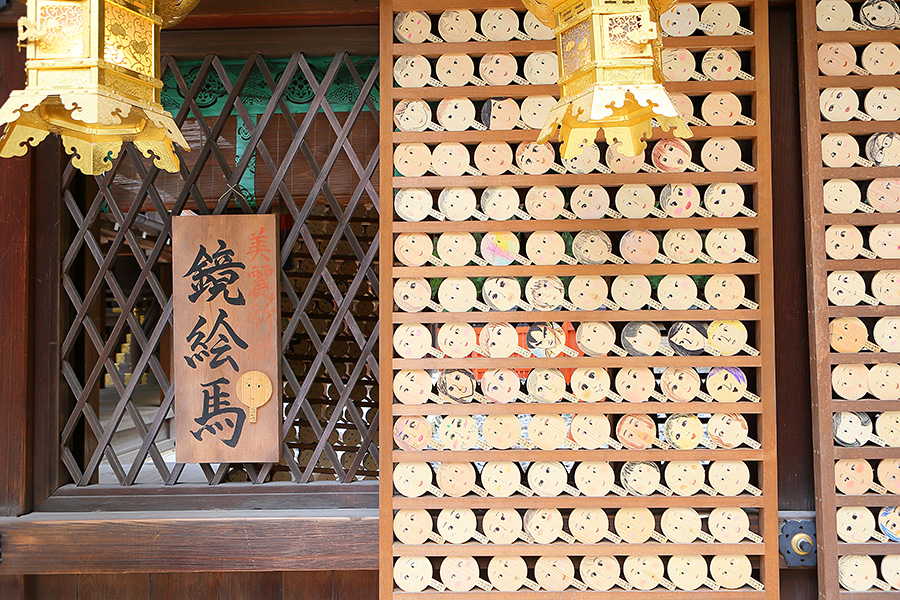 美麗の
鏡絵馬